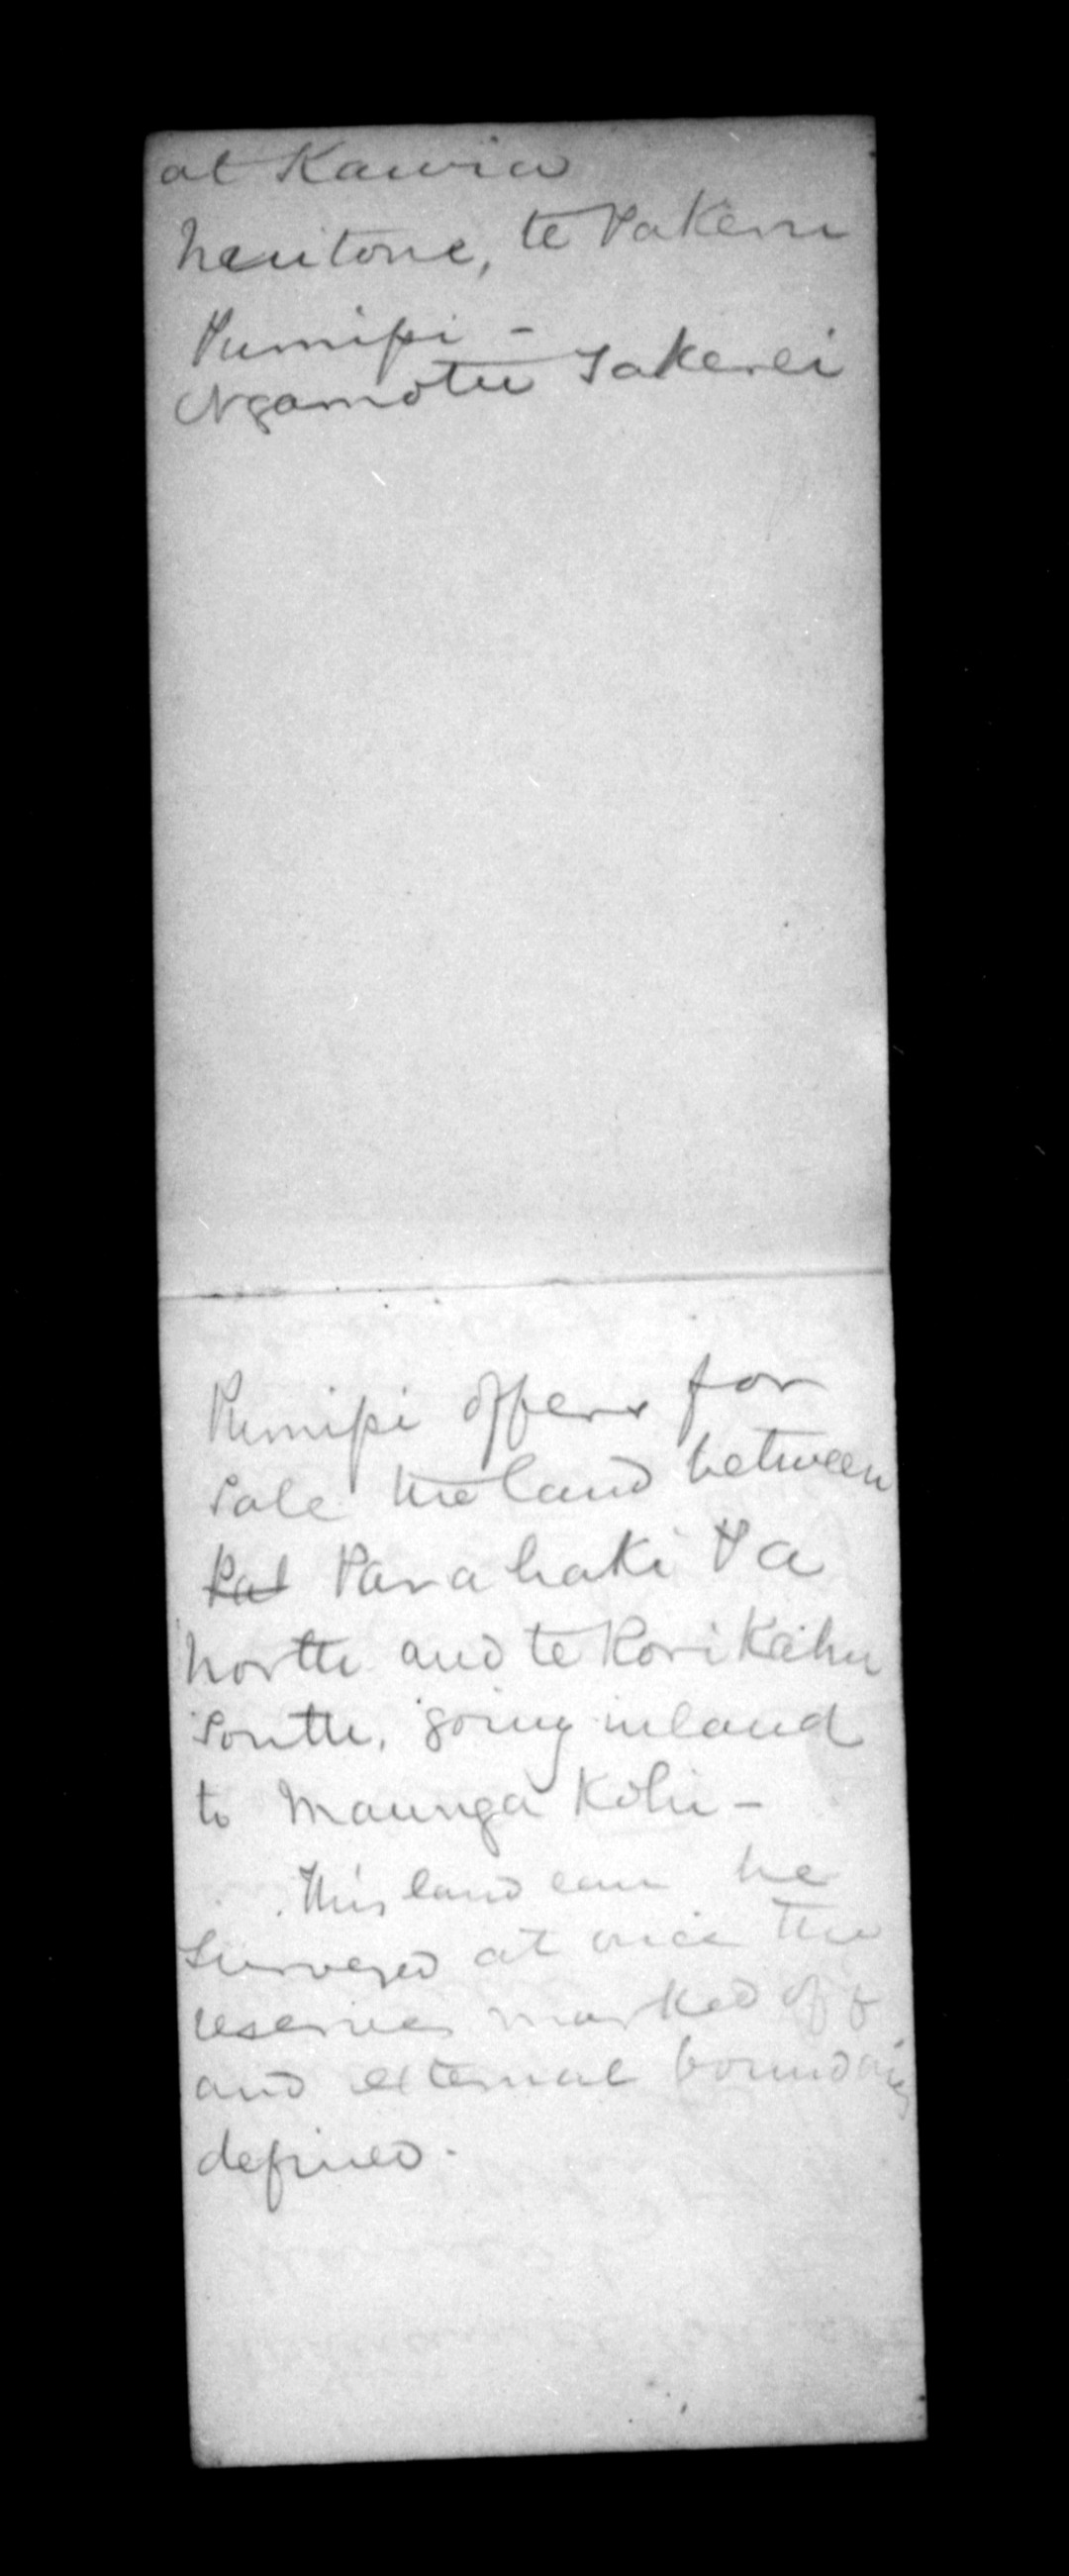 at Kawia
te Pakeru
Pumipi -
Ngamotu Takerei
Pumipi offers for
sale the land between
Pat Parahaki Pa
North and te Kori Kahu
South, going inland
to Maunga Kohu -
This land can be
surveyed at once the
reserves marked off
and external boundaries
defined.